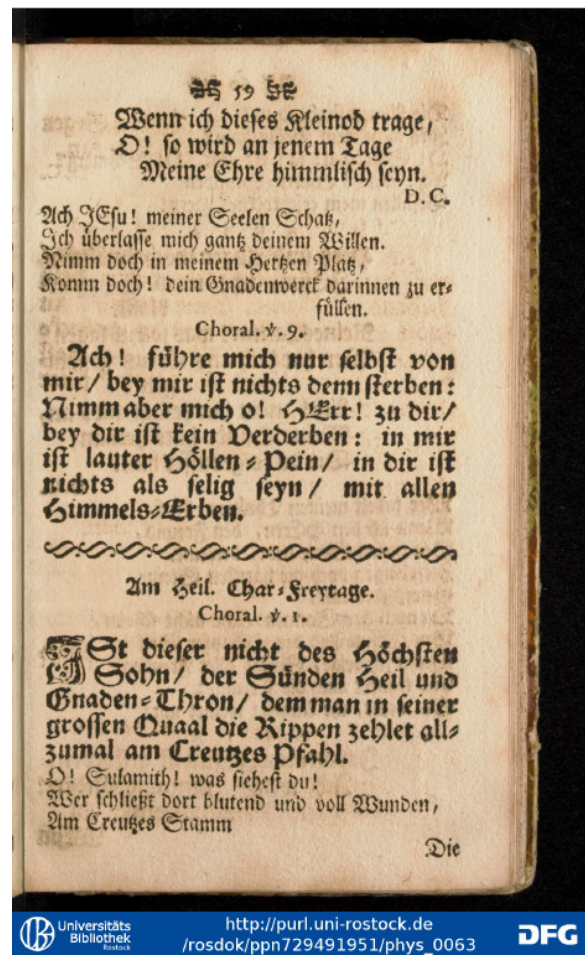 59
Wenn ich dieses Kleinod trage,
O! so wird an jenem Tage
Meine Ehre himmlisch seyn.
D. C.
Ach JEsu! meiner Seelen Schatz,
Ich überlasse mich gantz deinem Willen.
Nimm doch in meinem Hertzen Platz,
Komm doch! dein Gnadenwerck darinnen zu er-
füllen.
Choral. v. 9.
Ach! führe mich nur selbst von
mir/ bey mir ist nichts denn sterben:
Nimm aber mich o! HErr! zu dir/
bey dir ist kein Verderben: in mir
ist lauter Höllen-Pein/ in dir ist
nichts als selig seyn/ mit allen
Himmels-Erben.
Am Heil. Char-Freytage.
Choral. v. 1.
ISt dieser nicht des Höchsten
Sohn/ der Sünden Heil und
Gnaden-Thron/ dem man in seiner
grossen Quaal die Rippen zehlet all-
zumal am Creutzes Pfahl.
O! Sulamith! was siehest du!
Wer schließt dort blutend und voll Wunden,
Am Creutzes Stamm
Die
Universitäts
Bibliothek
Rostock
http://purl.uni-rostock.de
/rosdok/ppn729491951/phys_0063
DFG